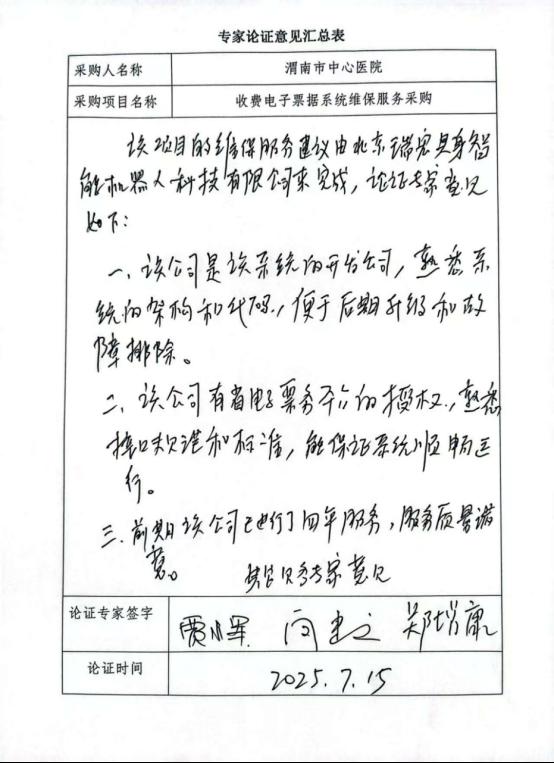 专家论证意见汇总表
采购人名称 渭南市中心医院
采购项目名称 收费电子票据系统维保服务采购
该项目的维保服务建议由北京瑞宏具身智
能机器人科技有限公司来完成，论证专家意见
如下：
一、该公司是该系统的开发公司，熟悉系
统的架构和代码，便于后期升级和故
障排除。
二、该公司有省电子票务平台的授权，熟悉
接口规范和标准，能保证系统顺畅运
行。
三、前期该公司已进行了四年服务，服务质量满
意。
专家意见
论证专家签字 贾小军
论证时间 2025.7.15